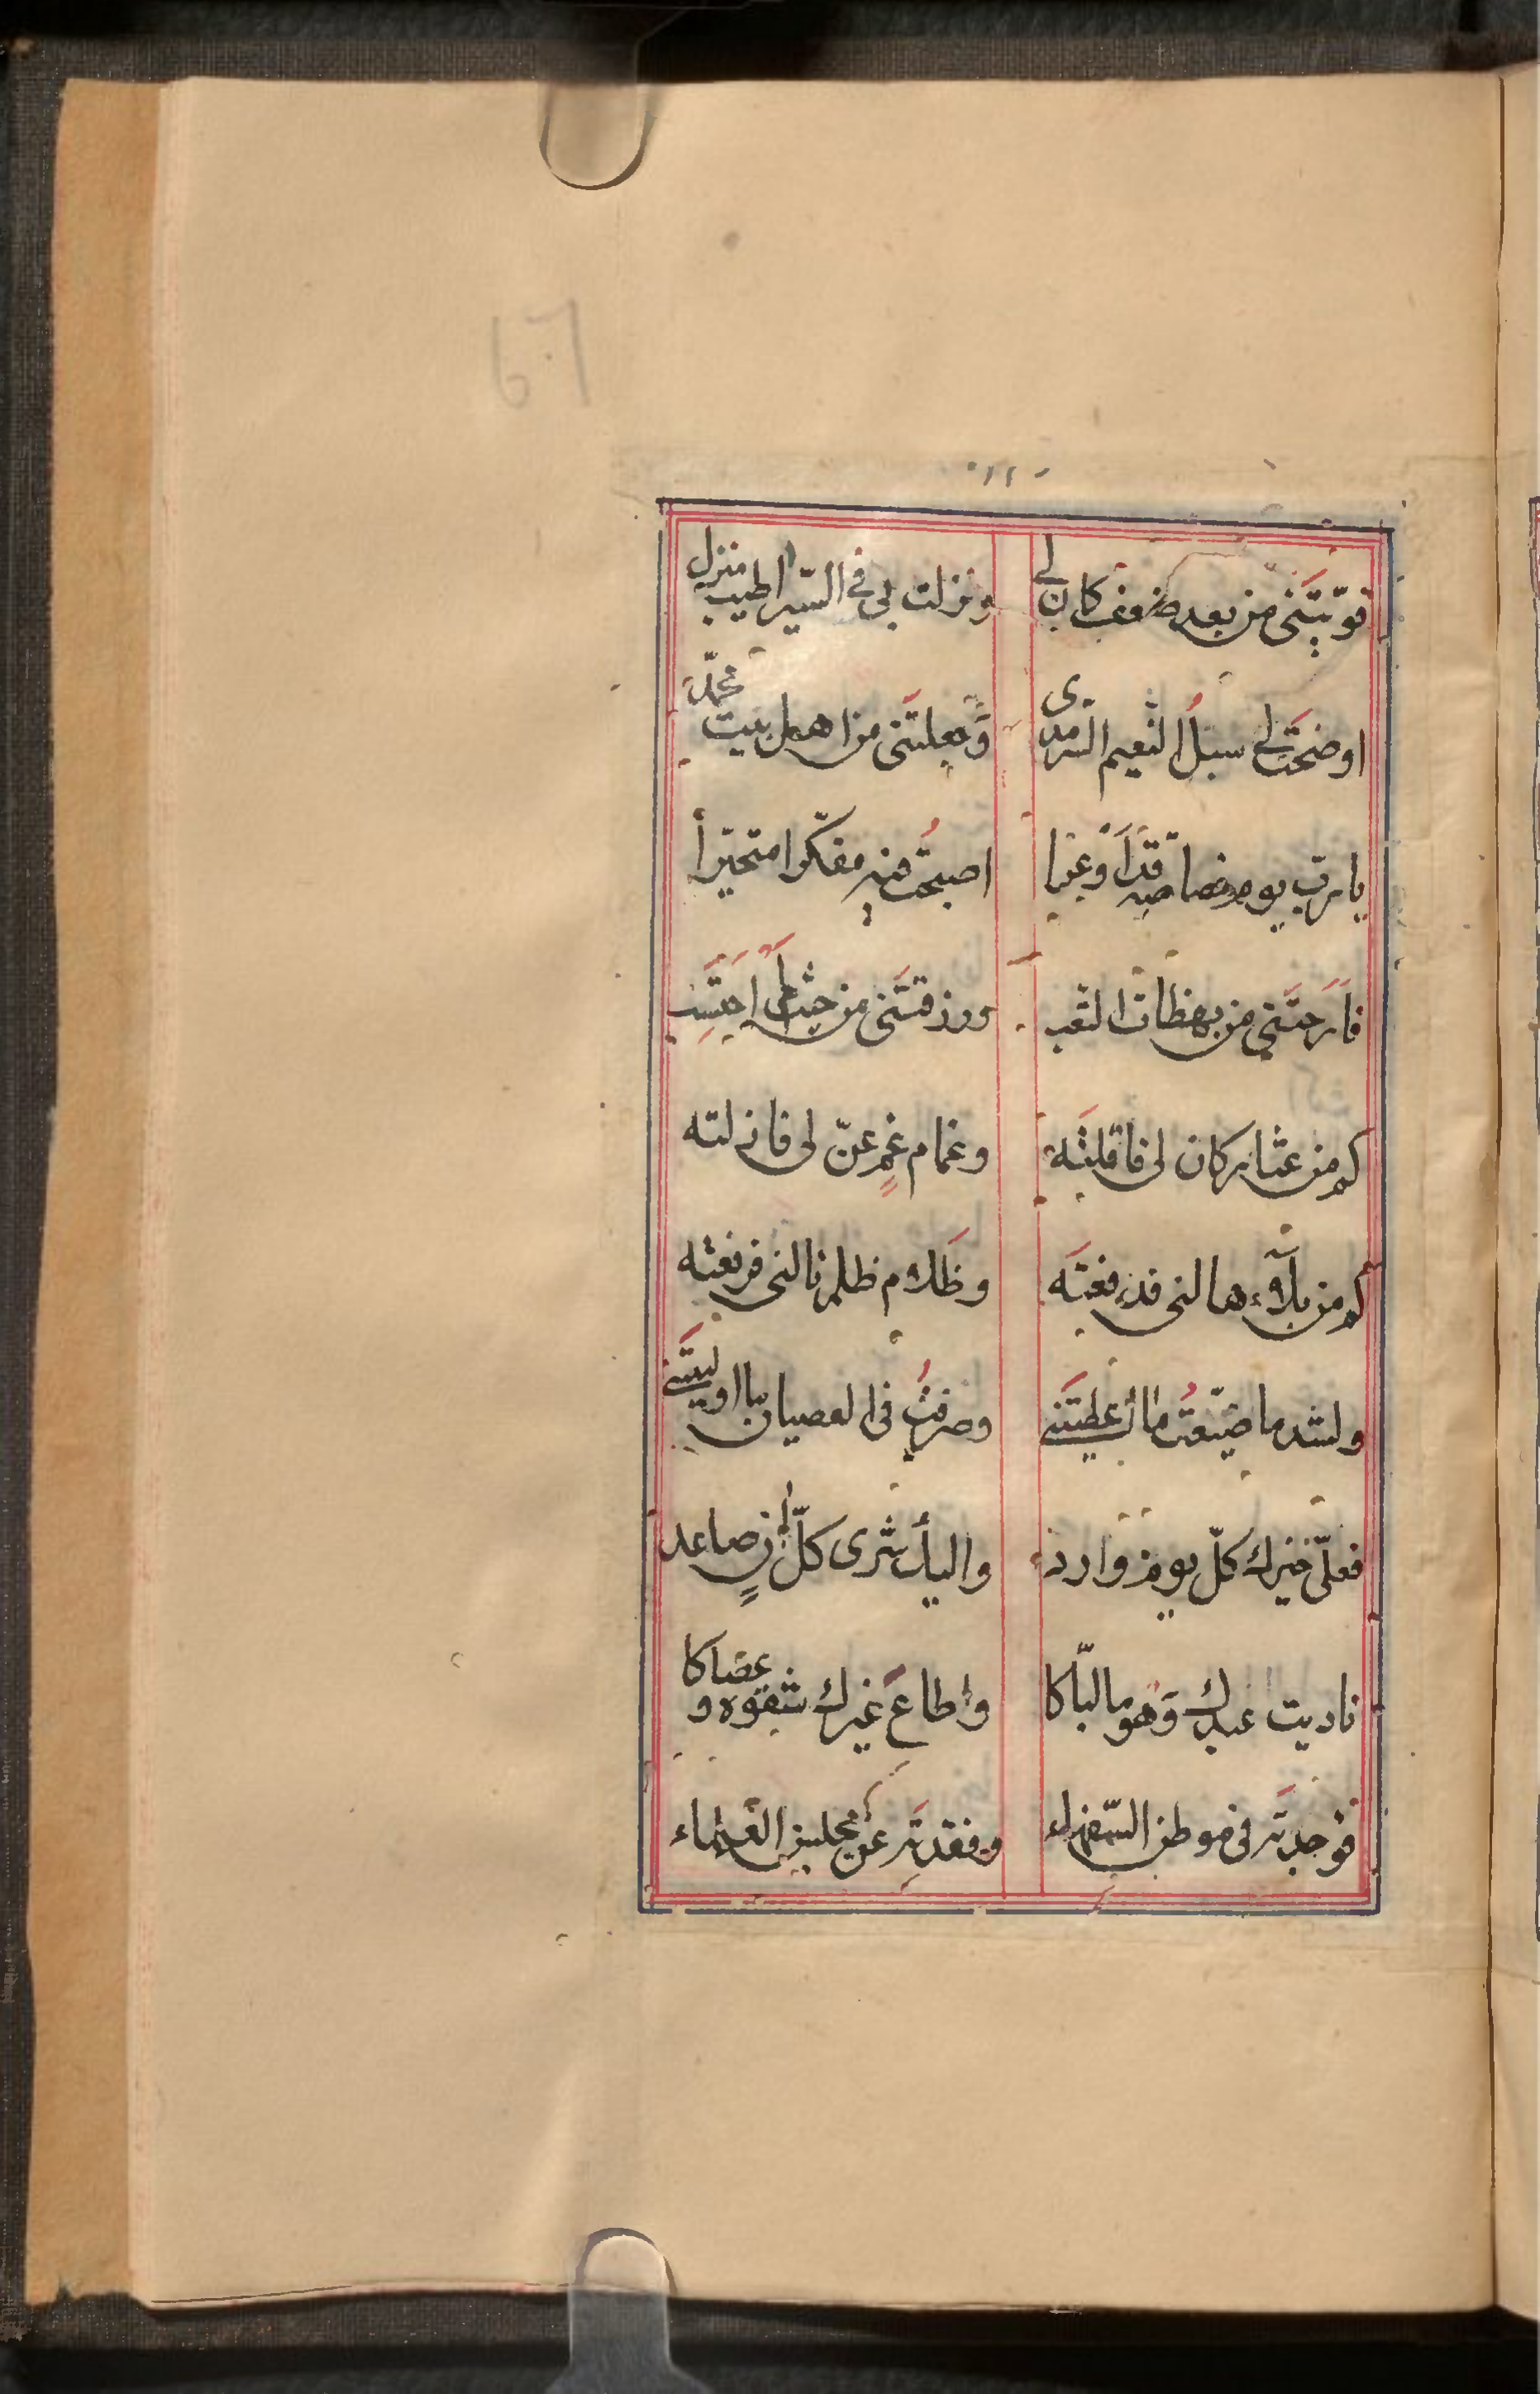 67
قوّيتَنى من بعد ضعف كان لى ونزلت بى فى السّير اطيب منزل
اوضحتَ لى سبلُ النعيم السّرمدى وَجعلتَنى من اهل بيت محمّد
يا ربّ يوم خصاصة قدَاَوعَبا اصبحتُ فيه مفكّرا متحيّراً
فاَرَحتَنى من بهظات التعب ورزقتَنى من حيث لم اَحتَسِب
كم من عثار كان لى فاقلتَه وغمام غمٍ عنّ لى فازلته
كم من بلآء هالنى فدفعتَه وظَلام ظلم نالنى فرفعته
ولشد ما ضيّعتُ ما أعطيتَنى وصرفتُ فى العصيان ما اوليتَنى
فعلّى خيرك كلّ يوم وارد واليك شرى كلّ انٍ صاعد
ناديت عبدك وَهو ما لبّاكا واطاعَ غيرك شقوه وعصاكا
فوجدتَه فى موطن السّفهاء وفقدتَه عن مجلسِ العلماء